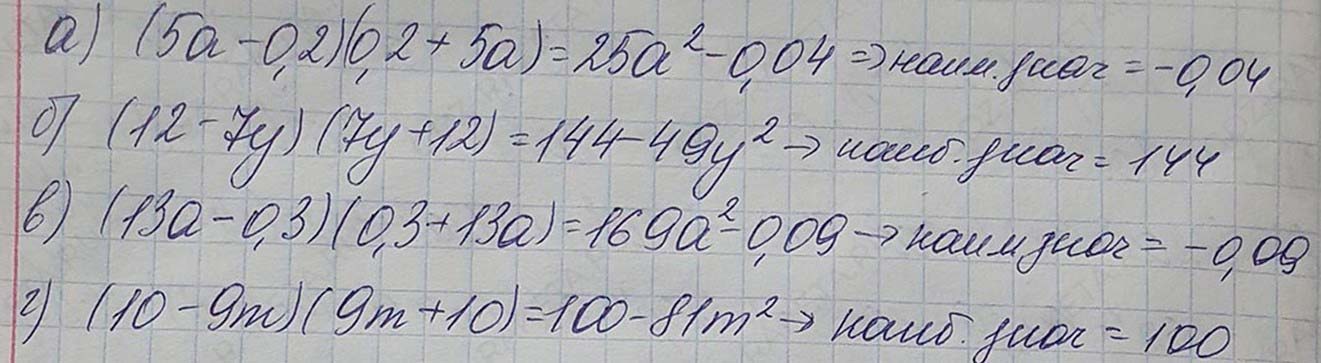 а) (5a - 0,2)(0,2 + 5a) = 25a² - 0,04 => наим. знач = -0,04
б) (12 - 7y) (7y + 12) = 144 - 49y² → наиб. знач = 144
в) (13a - 0,3) (0,3 + 13a) = 169a² - 0,09 → наим знач = -0,09
г) (10 - 9m) (9m + 10) = 100 - 81m² → наиб. знач = 100